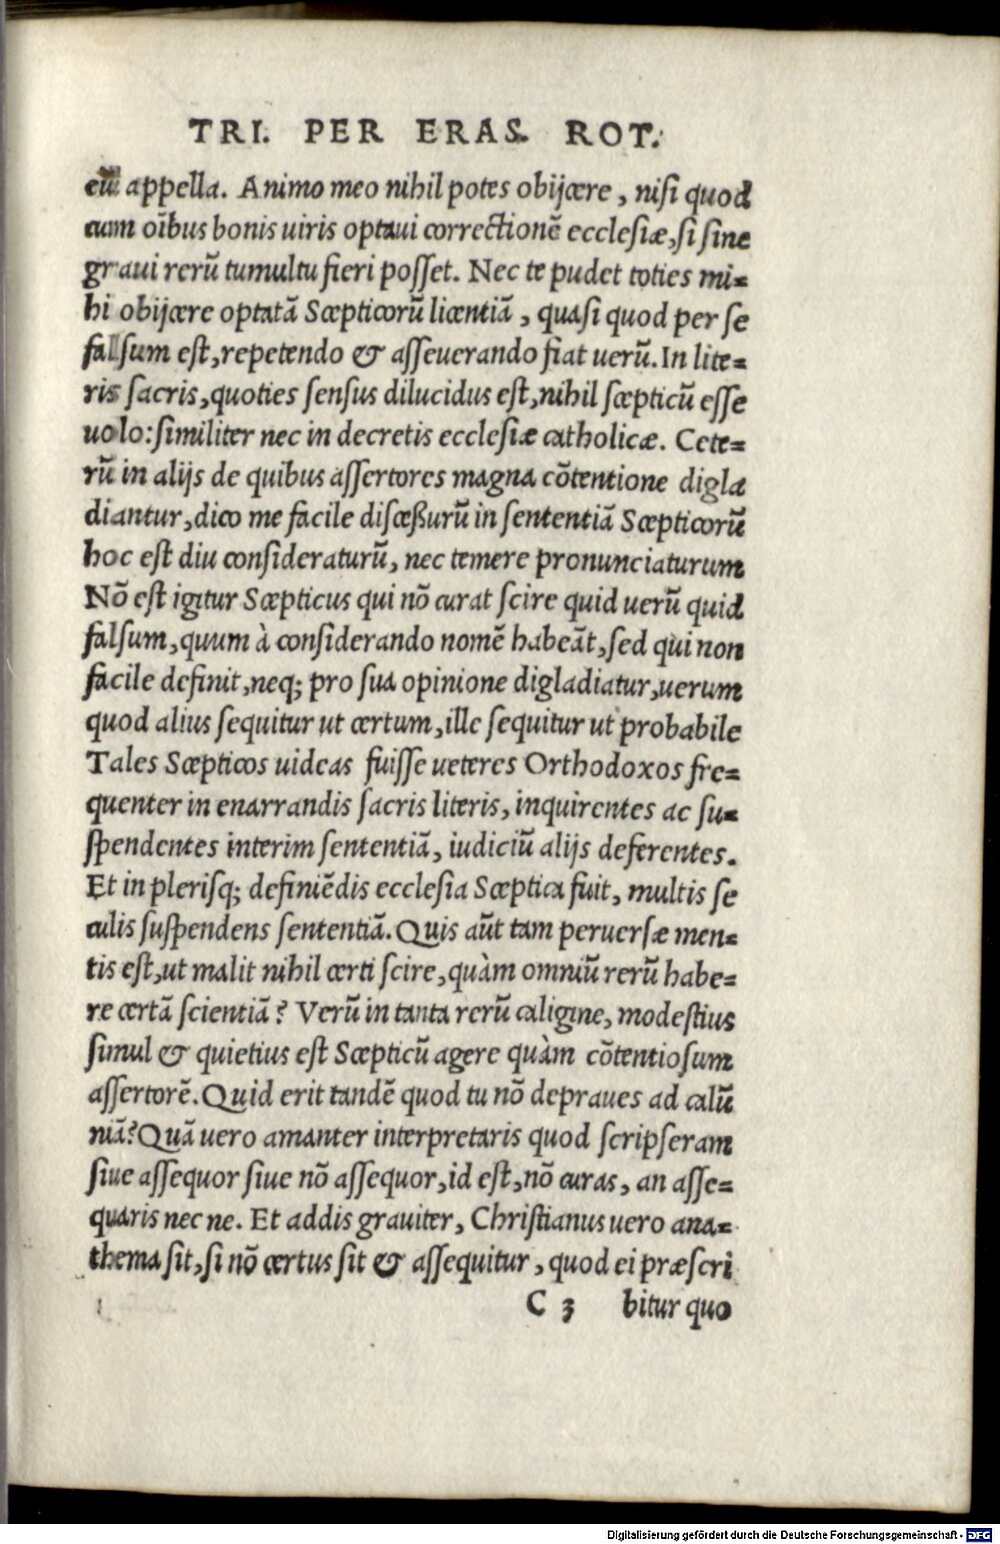 TRI. PER ERAS. ROT.
eũ appella. Animo meo nihil potes obijcere, nisi quod
cum oĩbus bonis uiris optaui correctionẽ ecclesiæ, si sine
graui rerũ tumultu fieri posset. Nec te pudet toties mi=
hi obijcere optatã Scepticorũ licentiã, quasi quod per se
falsum est, repetendo & asseuerando fiat uerũ. In lite=
ris sacris, quoties sensus dilucidus est, nihil scepticũ esse
uolo: similiter nec in decretis ecclesiæ catholicæ. Cete=
rũ in alijs de quibus assertores magna cõtentione digla
diantur, dico me facile discessurũ in sententiã Scepticorũ
hoc est diu consideraturũ, nec temere pronunciaturum
Nõ est igitur Scepticus qui nõ curat scire quid uerũ quid
falsum, quum à considerando nomẽ habeãt, sed qui non
facile definit, neq; pro sua opinione digladiatur, uerum
quod alius sequitur ut certum, ille sequitur ut probabile
Tales Scepticos uideas fuisse ueteres Orthodoxos fre=
quenter in enarrandis sacris literis, inquirentes ac su=
spendentes interim sententiã, iudiciũ alijs deferentes.
Et in plerisq; definiẽdis ecclesia Sceptica fuit, multis se
culis suspendens sententiã. Quis aũt tam peruersæ men=
tis est, ut malit nihil certi scire, quàm omniũ rerũ habe=
re certã scientiã? Verũ in tanta rerũ caligine, modestius
simul & quietius est Scepticũ agere quàm cõtentiosum
assertorẽ. Quid erit tandẽ quod tu nõ depraues ad calũ
niã? Quã uero amanter interpretaris quod scripseram
siue assequor siue nõ assequor, id est, nõ curas, an asse=
quaris nec ne. Et addis grauiter, Christianus uero ana=
thema sit, si nõ certus sit & assequitur, quod ei præscri
C 3 bitur quo
Digitalisierung gefördert durch die Deutsche Forschungsgemeinschaft - DFG